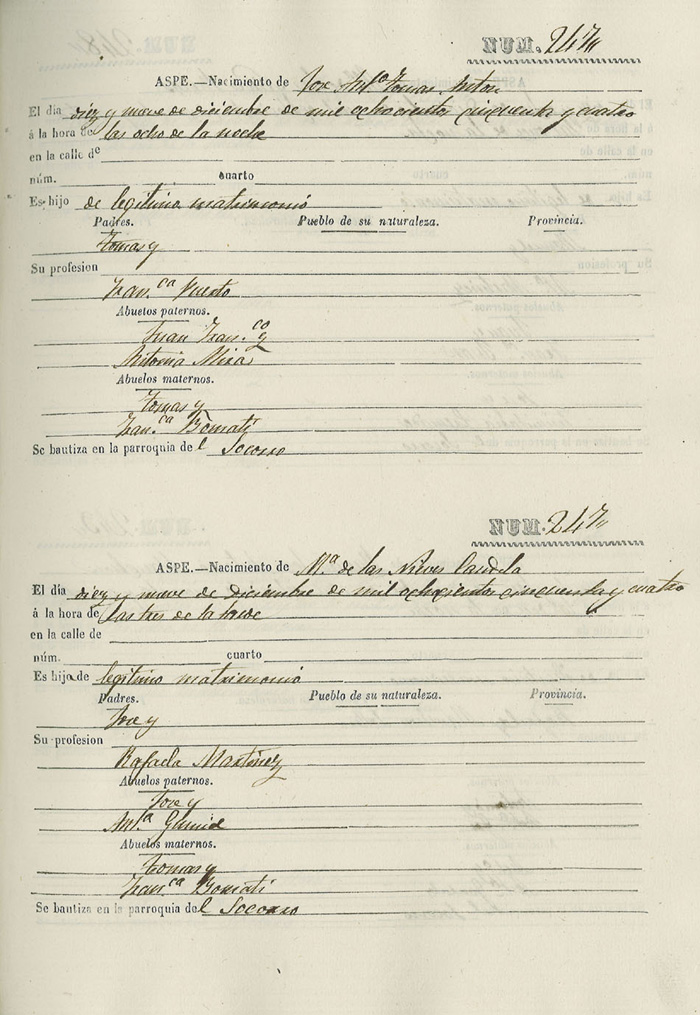 NUM. 247
ASPE.—Nacimiento de Jose Mª Tomas Anton
El dia diez y nueve de diciembre de mil ochocientos cinquenta y cuatro
á la hora de las ocho de la noche
en la calle de
núm. cuarto
Es hijo de legitimo matrimonio
Padres. Pueblo de su naturaleza. Provincia.
Tomas y
Su profesion
Franca Puerto
Abuelos paternos.
Juan Franco y
Antonia Mira
Abuelos maternos.
Tomas y
Franca Bomati
Se bautiza en la parroquia del Socorro
NUM. 247
ASPE.—Nacimiento de Mª de las Nieves Candela
El día diez y nueve de diciembre de mil ochocientos cinquenta y cuatro
á la hora de las tres de la tarde
en la calle de
núm. cuarto
Es hija de legitimo matrimonio
Padres. Pueblo de su naturaleza. Provincia.
Jose y
Su profesion
Rafaela Martinez
Abuelos paternos.
Jose y
Mª
Abuelos maternos.
Tomas y
Franca Bomati
Se bautiza en la parroquia del Socorro